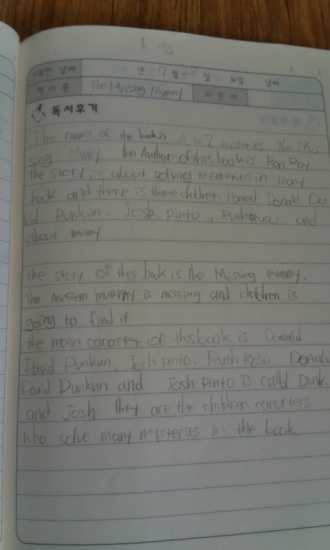 년 7월 일 요일 날씨
책이름 The Missing Mummy 지은이
독서후기
The name of the book is A to Z mysteries the Mis
the Author of this book is Ron Roy
the story is about solving mysteries in
book and there is three children named Donald Da
vid Dunkun, Josh pinto, Ruth rose and
about
the story of this book is the Missing mummy.
the museum mummy is missing and children is
going to find it
the main caracter of this book is Donald
David Dunkun, Josh pinto, Ruth Rose Donald
David Dunkun and Josh Pinto is call Dink
and Josh they are the children caracters
who solve many mysteries in the book